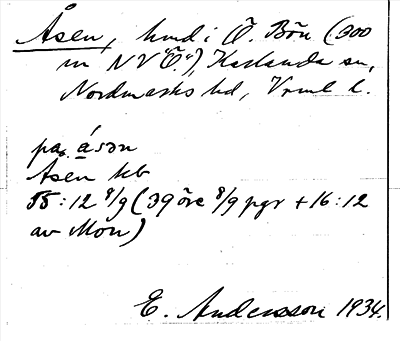 Åsen, hmd i Ö. Bön (300
m NV "Ö."), Karlanda sn,
Nordmarks hd, Vrml l.
på åsən
Åsen hb
55:12 8/9 (39 öre 8/9 pgr + 16:12
av Mon)
E. Andersson 1934.